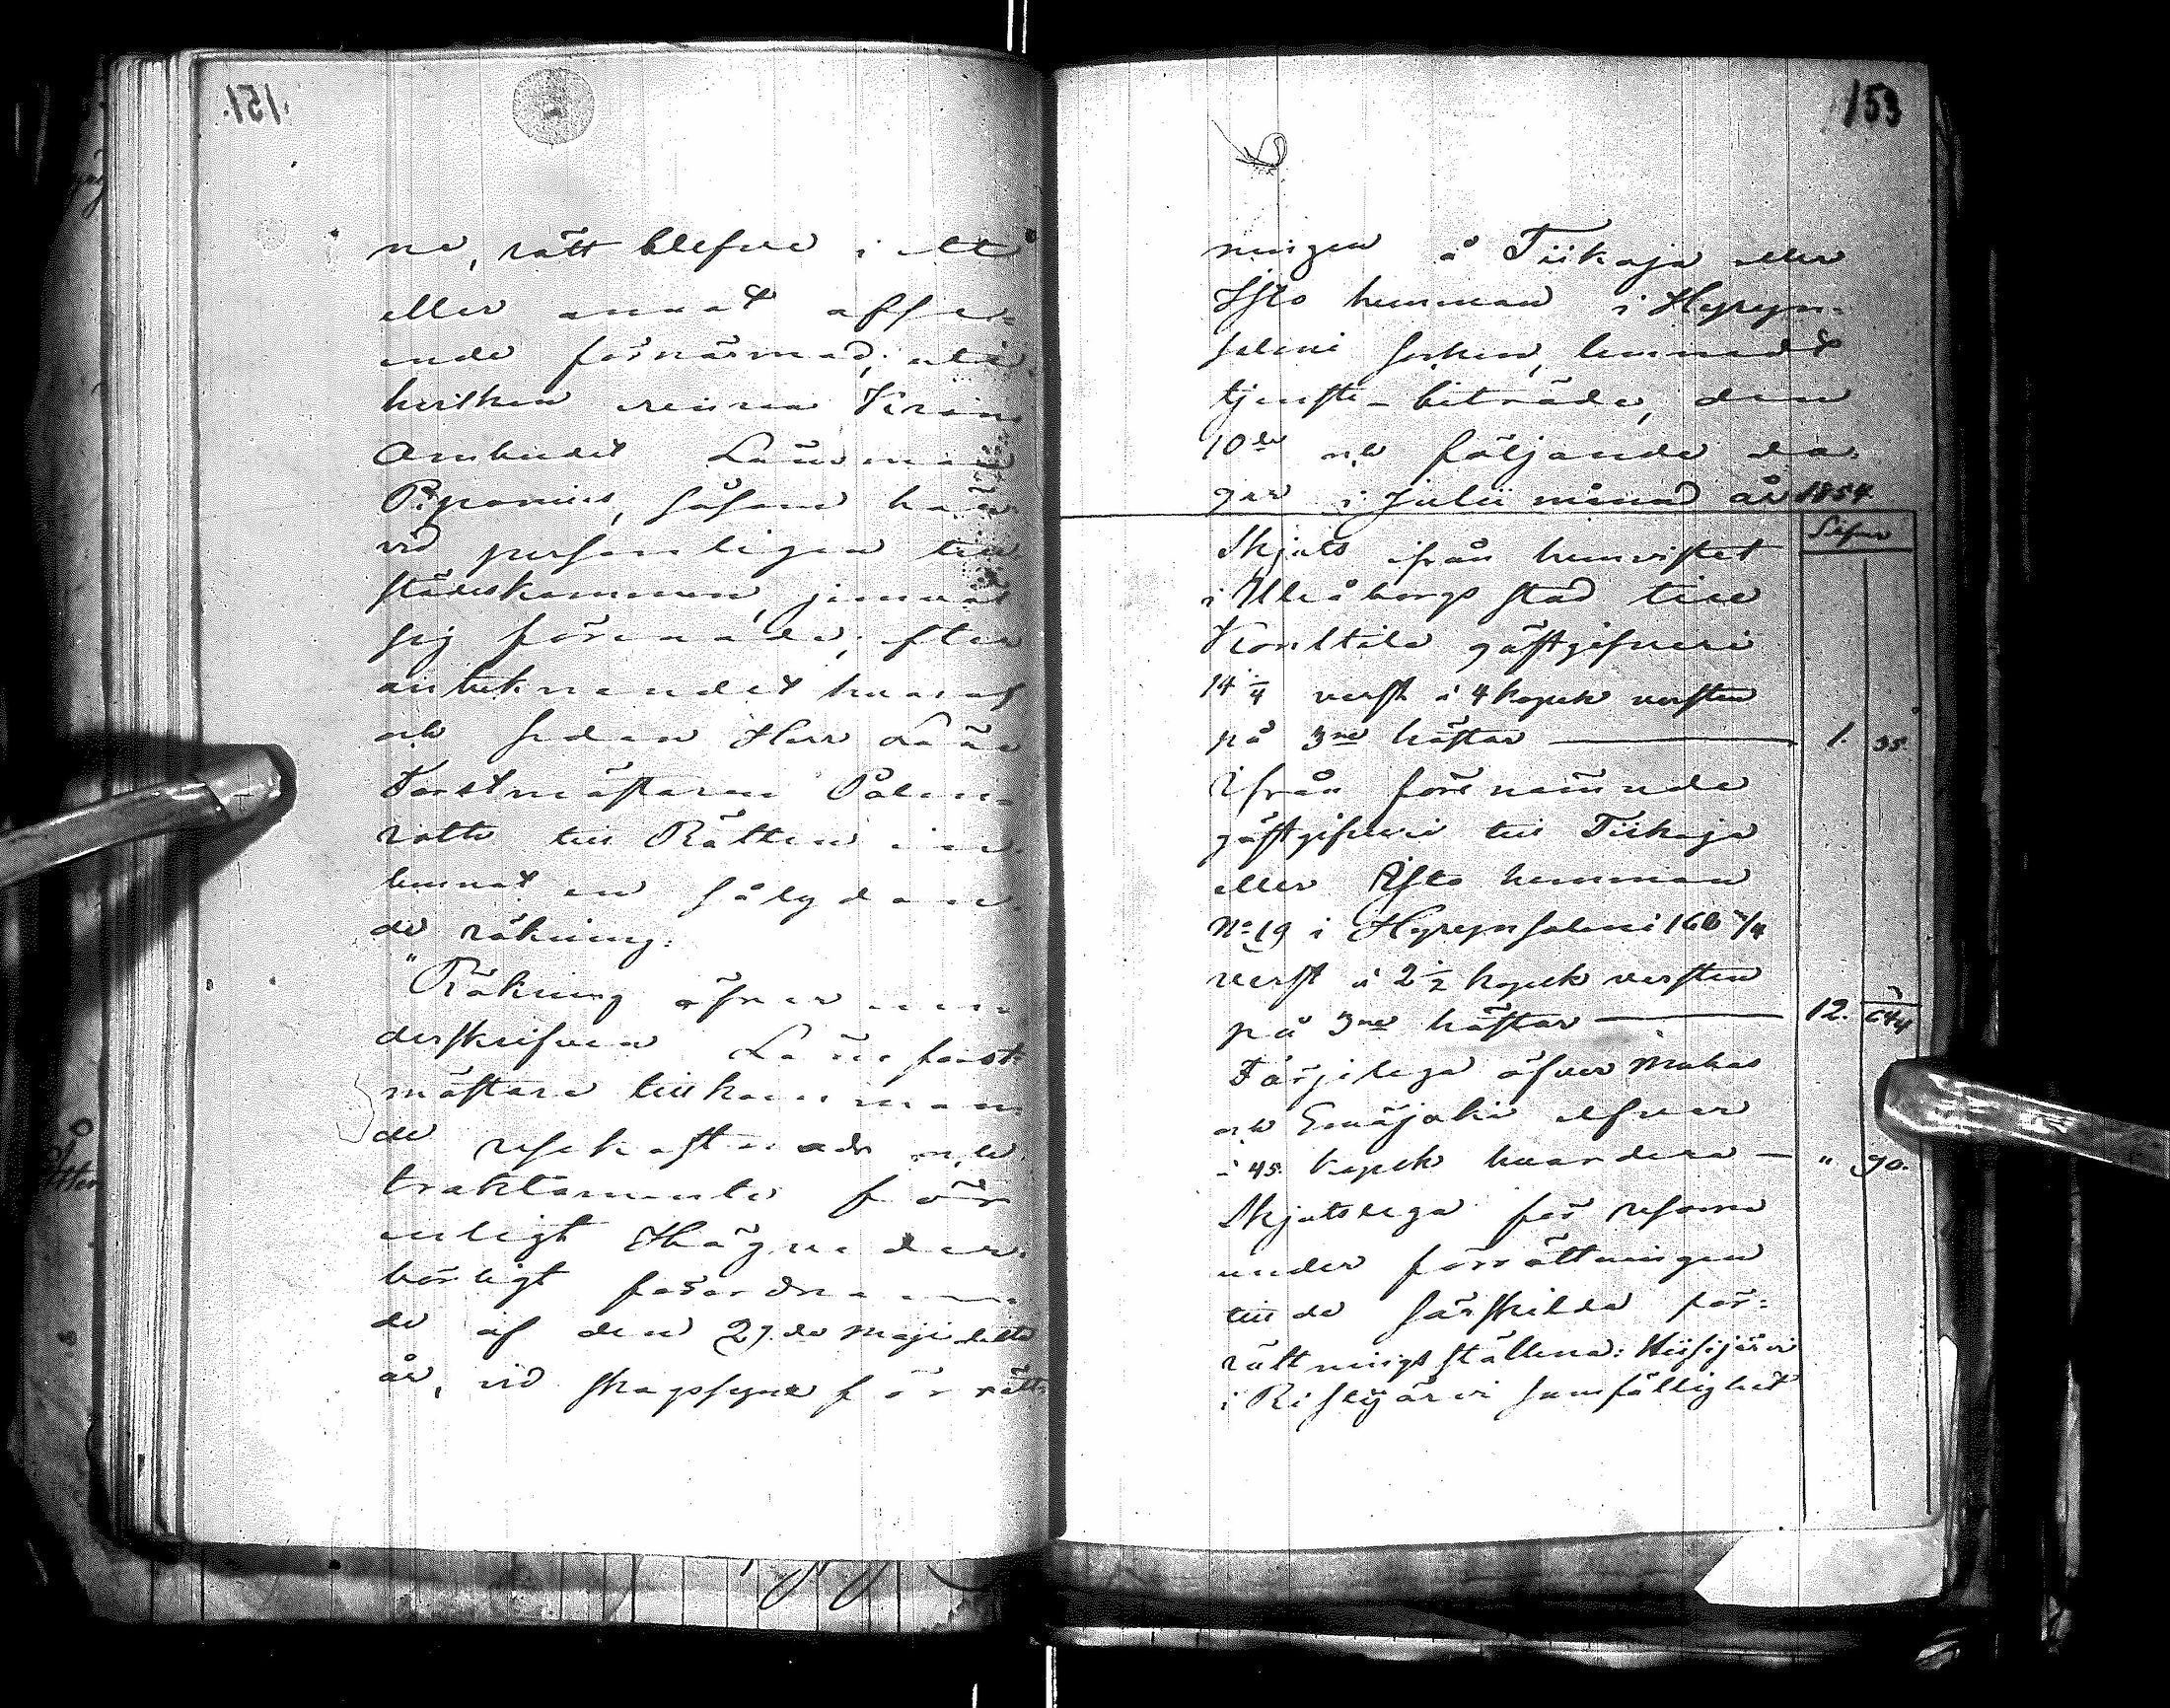 ne, rätt blefve i ett
eller annat afse=
ende förnärmad; uti
hvilken mening Krono
Ombudet Länsman
Piponius, såsom här
vid personligen till
städeskommen, jemväl
sig förenade; efter
antecknandet hvaraf
och sedan Herr Läns
Forstmästaren Pålen
till Rätten in
lemnat en sålydan
de räkning:
"Räkning öfver un
derskrifven Läns forst
mästare tillkomman
de resekostnads och
traktamente för
enligt Häg
börligt förordnan
de af den 27.de Maji detta
år, vid skogssyne förrätt
153
ningen å Tiikaja eller
Isto hemman i Hyryn=
salmi socken, lemnadt
tjenste-biträde, den
10de och följande da=
gar i Julii månad år 1854
Silfver
Skjuts ifrån hemvistet
i Uleåborgs stad till
Konttila gästgifveri
14 1/4 verst à 4 kopek versten
på 3ne hästar — 1.
Ifrån förenämnde
gästgifveri till Tiikaja
eller Isto hemman
No 19 i Hyrynsalmi 168 3/4
verst à 2 1/2 kopek versten
på 3ne hästar — 12.
Färjelega öfver Muhos
och Emäjoki elfver
à 45. kopek hvardera — " 90.
Skjutslega för resorne
under förrättningen
till de särskilda för=
rättningsställena: Hiisijärvi
i Ristijärvi samfällighet